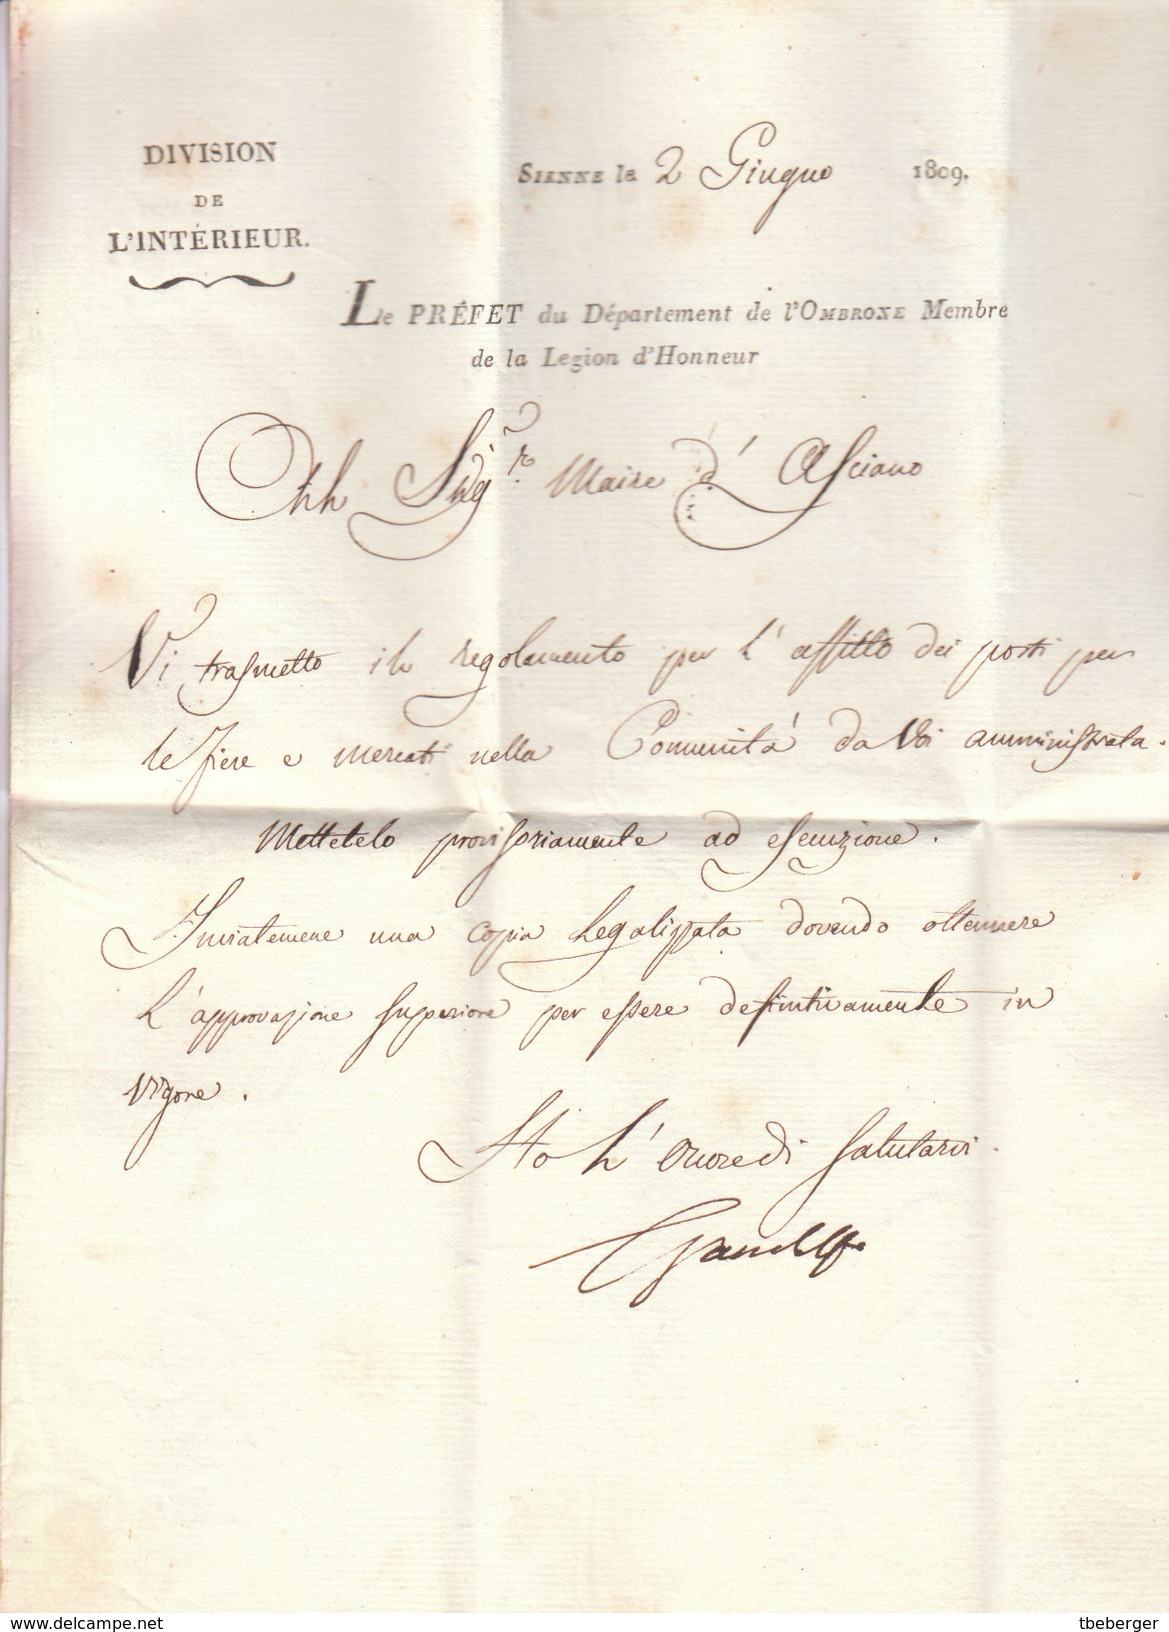 DIVISION
DE
L'INTÉRIEUR.
SIENNE le 2 Giugno 1809.
Le PRÉFET du Département de l'OMBRONE Membre
de la Legion d'Honneur
Al Sig.r Maire d'Asciano
Vi trasmetto il regolamento per l'affitto dei posti per
le fiere e mercati nella Comunità da Voi amministrata.
Mettetelo provisoriamente ad esecuzione.
Inviatemene una copia legalizzata dovendo ottenere
l'approvazione superiore per essere definitivamente in
vigore.
Ho l'onore di salutarvi.
delcampe.net
tbeberger